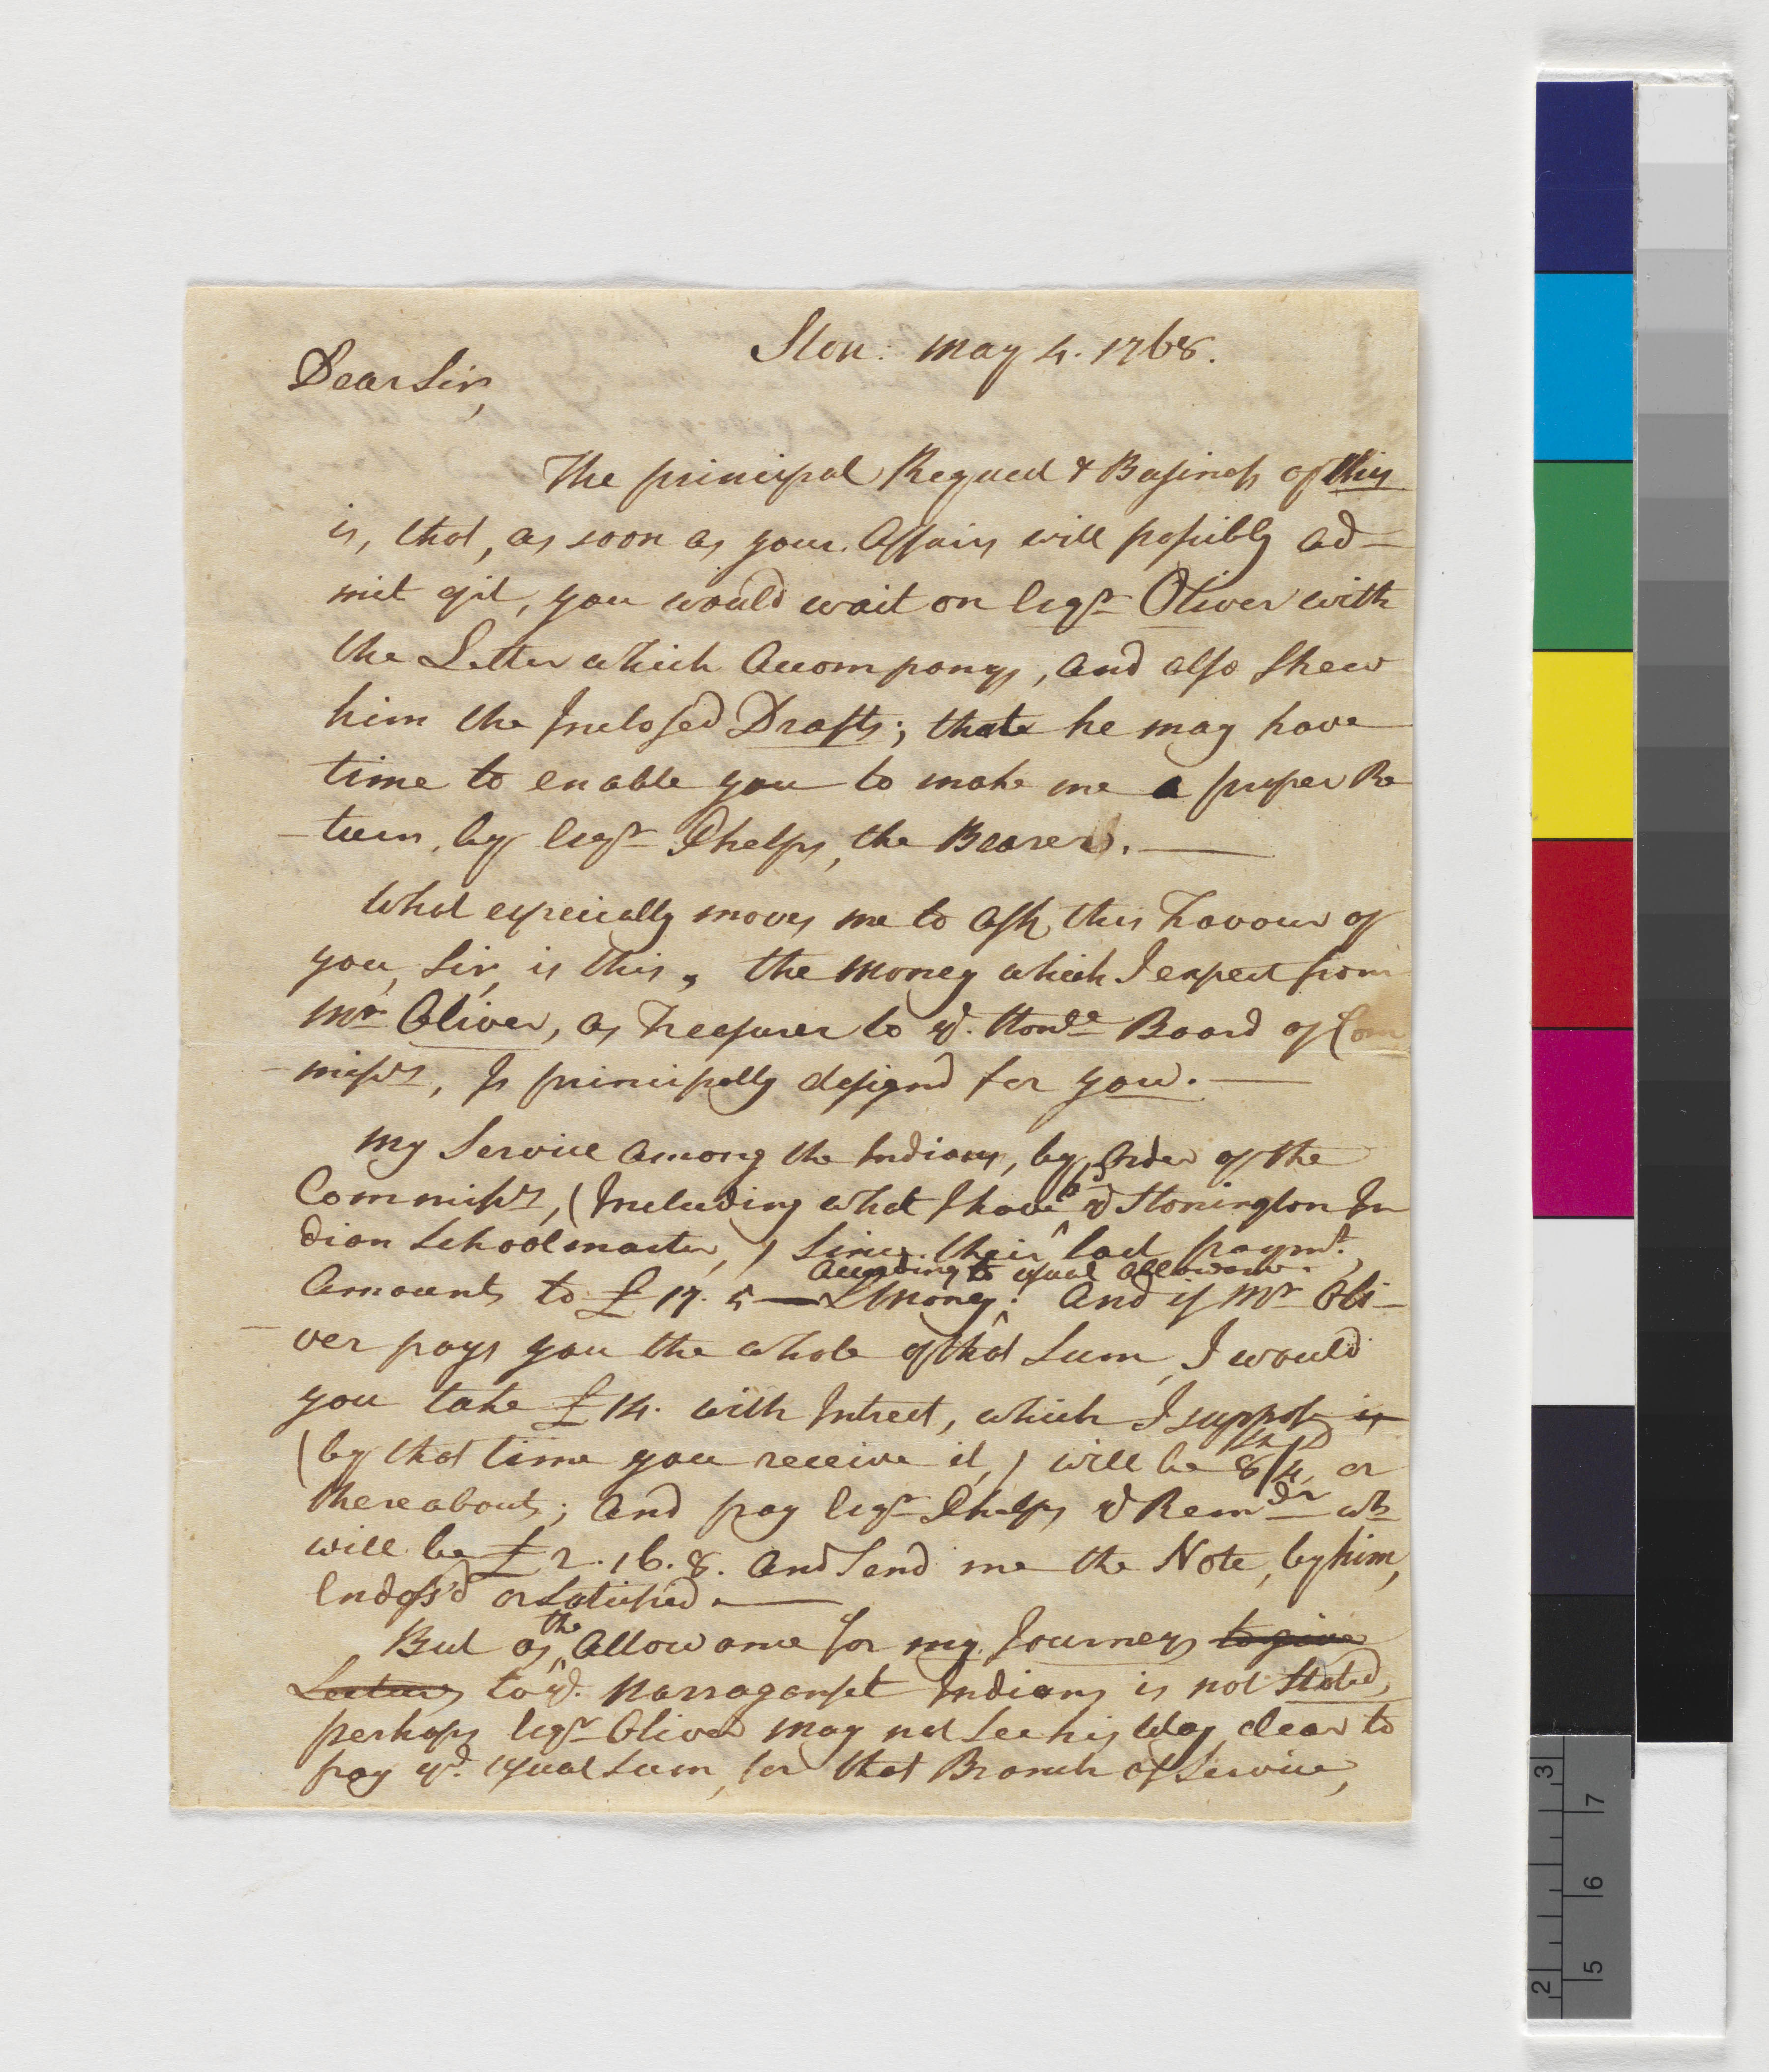 Ston: May 4. 1768.
Dear Sir,
The principal Request & Business of this
is, that, as soon as your Affairs will possibly ad-
mit of it, you would wait on Esqr Oliver with
the Letter which Accompanys, and also shew
him the Inclosed Drafts; that he may have
time to enable you to make me a proper Re
-turn, by Esqr Phelps, the Bearer.
What especially moves me to Ask this Favour of
you, Sir, is this, the Money which I expect from
Mr Oliver, as Treasurer to ye. Honble Board of Com
-missrs, Is principally designd for you.
My Service Among the Indians, by Order of the
Commissrs, (Including what I have pd ye Stonington In
dian Schoolmaster,) Since their last paymt.,
According to usual Allowance.
Amounts to £17. 5 LMoney. And if Mr Oli-
ver pays you the whole of that Sum, I would
you take £14. with Intrest, which I suppose is
(by that time you receive it,) will be 8/4, or
thereabouts; and pay Esqr Phelps ye Remdr wh
will be £2. 16. 8. And Send me the Note, by him,
Endoss'd or Satisfied.
But as the Allowance for my Journeys to give
Lectures to ye. Narraganset Indians is not Stated,
perhaps Esqr Oliver may not See his Way clear to
pay ye. usual Sum, for that Branch of Service,
3
7
6
2
5